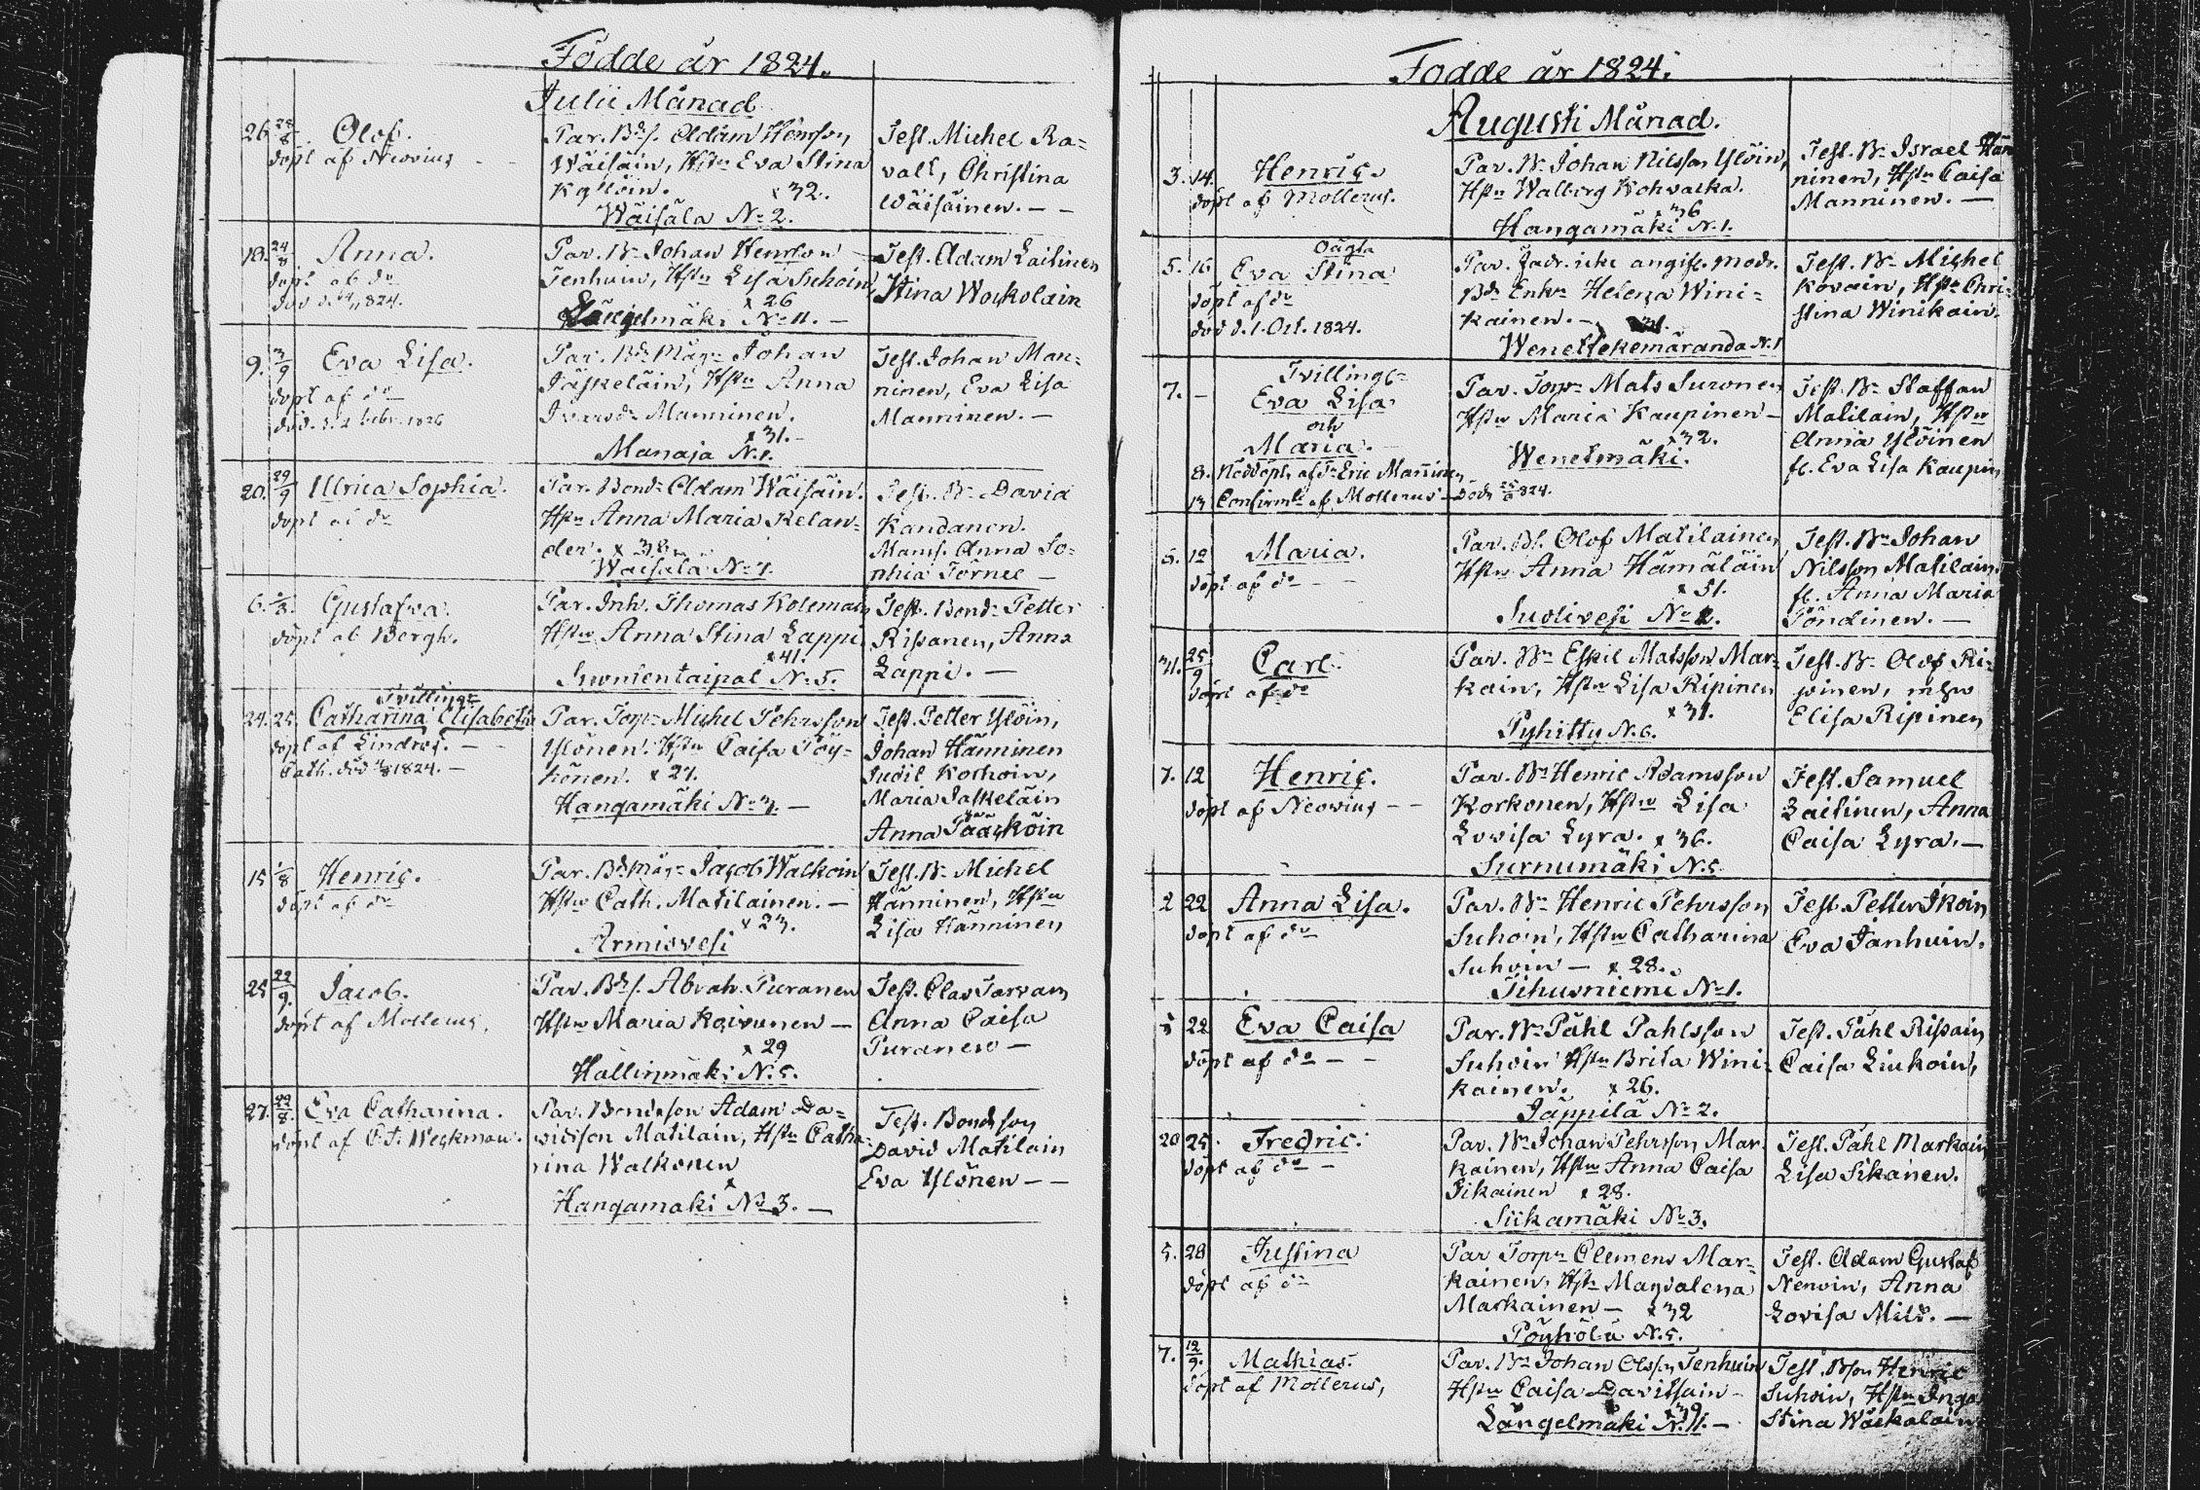 Födde år 1824.
Julii Månad
26. 28/8 Olof.
döpt af Neovius
Par. Bds. Adam Hemsson
Wäisäin, Hstr Eva Stina
x 32.
Wäisälä No 2.
Test. Michel Ra=
vall, Christina
Wäisäinen. — —
18. 24/8 Anna.
döpt af do
Par. Br Johan Henrson
Tenhuin, Hstr Lisa Suhoin
x 26
Längelmäki No 11. —
Test. Adam Laitinen
Stina Wos̈kolain
9. 3/9 Eva Lisa.
döpt af do
död. d. 2 Febr. 1826
Par. Bds Mågn Johan
Jäskeläin, Hstr Anna
Ivarsdr Manninen.
x 31. —
Manaja N. 1.
Test. Johan Man=
ninen, Eva Lisa
Manninen. —
20. 29/9 Ulrica Sophia.
döpt af do
Par. Bond. Adam Wäisäin.
Hstr Anna Maria Kelan=
der. x 38.
Wäisälä No 1.
Test. Br David
Kandanen.
Mams. Anna So=
phia Törne —
6. 1/8. Gustafva.
döpt af Bergh.
Par. Inh. Thomas Kolemain
Hstr Anna Stina Lappi
x 41.
Suontentaipal No 5.
Test. Bond. Petter
Rissanen, Anna
Lappi. —
Tvilling:
24. 25. Catharina Elisabeth
döpt af Lindroos. —
Cath. död 1824. —
Par. Torp. Michel Pehrsson
Ylönen. Hstr Caisa Pöy=
könen. x 27.
Hangamäki No 3. —
Test. Petter Ylöin,
Johan Hänninen
Judit Korhoin,
Maria Jaskeläin
Anna Pääsköin
15 1/8 Henric.
döpt af do
Par. Bds Mågn Jacob Walkoin
Hstr Cath. Matilainen. —
x 23.
Armisvesi
Test. Br Michel
Hänninen, Hstr
Lisa Hänninen
25 22/9. Jacob.
döpt af Mollerus.
Par. Bds. Abrah. Puranen
Hstr Maria Koivunen —
x 29
Hällinmäki N. 5.
Test. Clas Tarvain
Anna Caisa
Puranen —
27. 22/8. Eva Catharina.
döpt af C. J. Weckman.
Par. Bondeson Adam Da=
vidson Matilain, Hstr Catha=
rina Walkonen
x
Hangamäki No 3. —
Test. Bondson
David Matilain
Eva Ylönen — —
Födde år 1824.
Augusti Månad.
3. 14. Henric.
döpt af Mollerus.
Par. Br Johan Nilsson Ylöin,
Hstr Walborg Kohvakka.
x 36
Hangamäki N. 1.
Test. Br Israel Hän
ninen, Hstr Caisa
Manninen. —
Oägta
5. 16 Eva Stina
döpt af do
död d. 1. Oct. 1824.
Par. Fadr. icke angifv. Modr.
Bds Enka Helena Wini=
kainen. —
Wenettekemäranda N. 1
Test. Br Michel
Kovain, Hstr Chri=
stina Winikain.
Tvilling:
7. — Eva Lisa
och
Maria.
8. Nöddöpte af Dr Eric Manninen
13 Confirmte af Mollerus — Död 824.
Par. Torpr Mats Suronen
Hstr Maria Kaupinen —
x 32.
Wenetmäki.
Test. Br Staffan
Matilain, Hstr
Anna Ylöinen
fl. Eva Lisa Kaupin
5. 12 Maria.
döpt af do — —
Par. Bd. Olof Matilainen
Hstr Anna Hämäläin
x 31.
Suolivesi No 2.
Test. Br Johan
Nilsson Matilain.
fl. Anna Maria
Pöndinen. —
31. 25/9 Carl.
döpt af do
Par. Br Eskil Matsson Mar=
kain, Hstr Lisa Ripinen
x 31.
Pyhitty N. 6.
Test. Br Olof Ri=
pinen, mön
Elisa Ripinen
7. 12 Henric.
döpt af Neovius — —
Par. Br Henric Adamsson
Korkonen, Hstr Lisa
Lovisa Lyra. x 36.
Surnumäki N. 5
Test. Samuel
Laitinen, Anna
Caisa Lyra. —
2 22 Anna Lisa.
döpt af do
Par. Br Henric Pehrsson
Suhoin, Hstr Catharina
Suhoin — x 28.
Tihusniemi No 1.
Test. Petter Ikoin
Eva Janhuin.
5 22 Eva Caisa
döpt af do — —
Par. Br Påhl Pahlsson
Suhoin Hstr Brita Wini=
kainen. x 26.
Jäppilä No 2.
Test. Påhl Rissain
Caisa Liukoin,
20 25. Fredric.
döpt af do —
Par. Br Johan Pehrsson Mar
kainen, Hstr Anna Caisa
Sikainen x 28.
Siikamäki No 3.
Test. Påhl Markain
Lisa Sikanen.
5. 28 Justina
döpt af do
Par Torpr Clemens Mar=
kainen, Hstr Magdalena
Markainen — x 32
Pöyhölä N. 5.
Test. Adam Gustaf
Nenoin, Anna
Lovisa Mild. —
7. 12/9. Mathias.
döpt af Mollerus,
Par. Br Johan Olsson Tenhuin
Hstr Caisa Davitsain —
x 39
Längelmäki N. 11. —
Test. Bson Henric
Suhoin, Hstr Inga
Stina Wäskalain